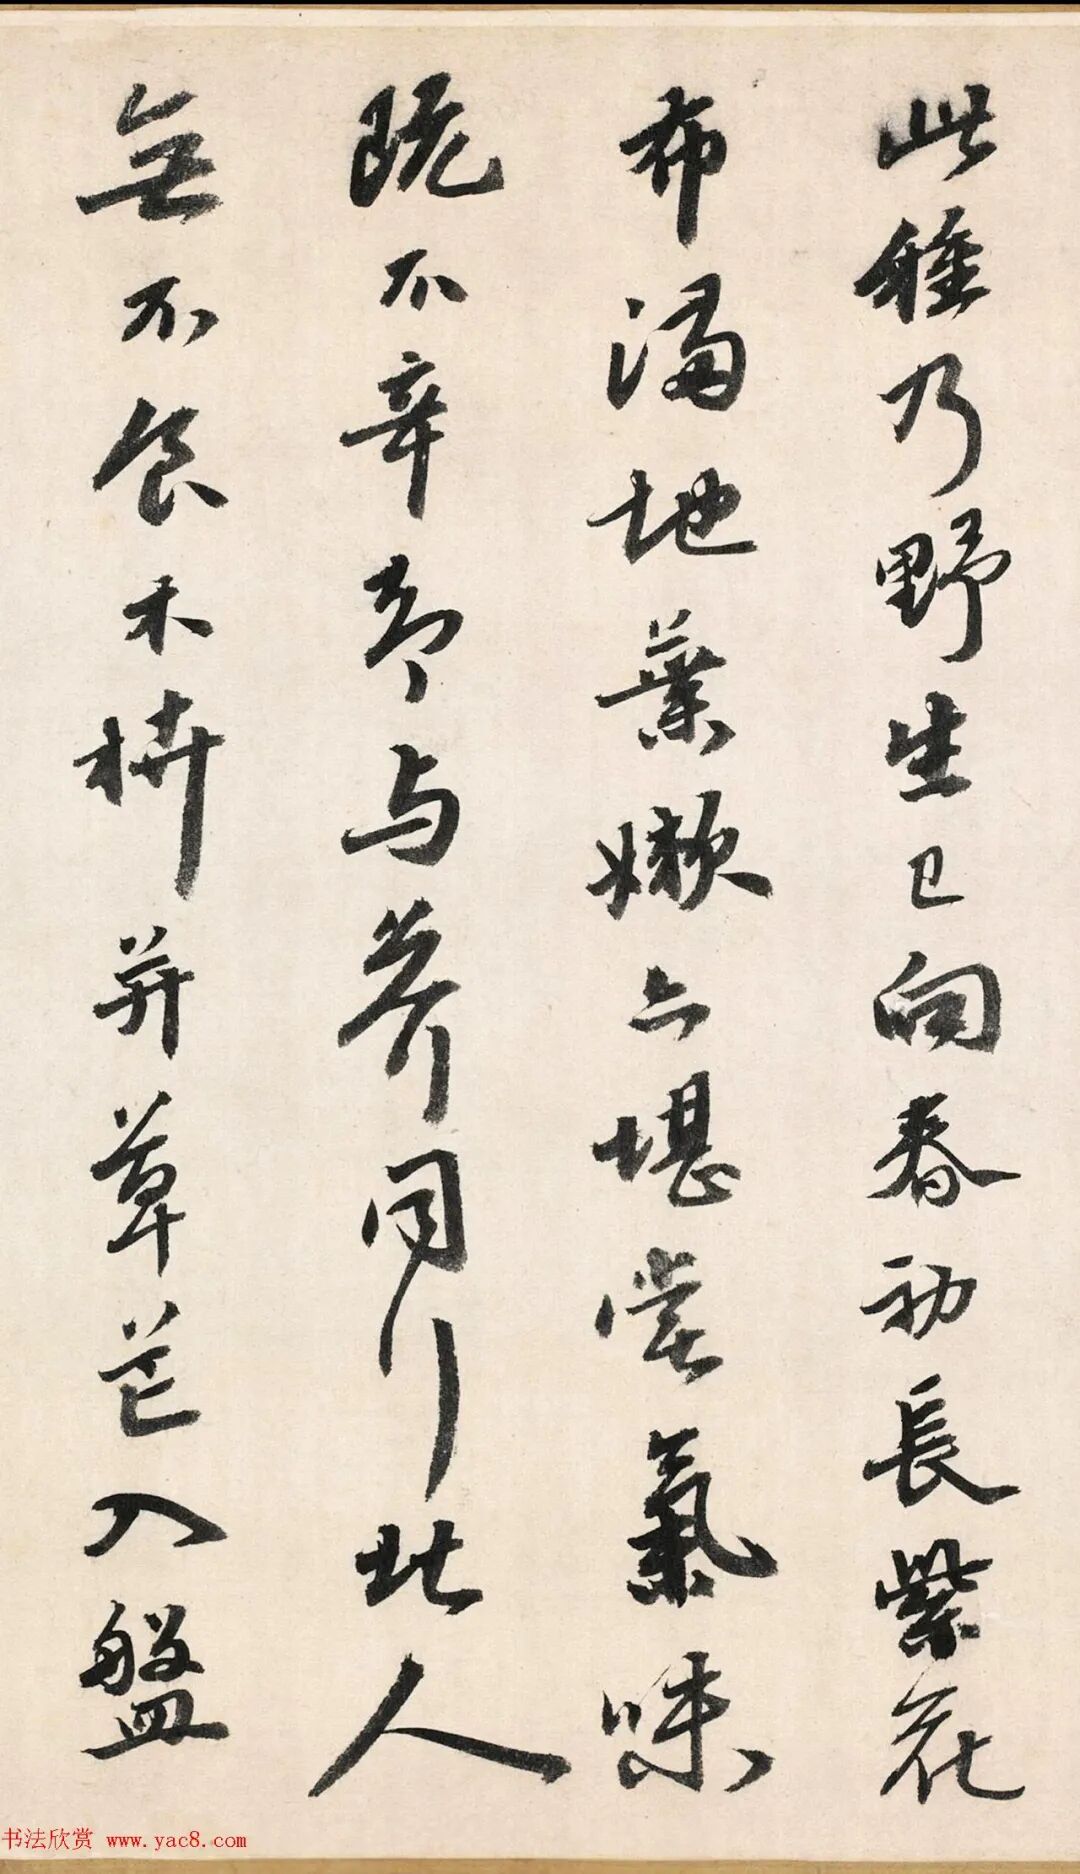 此種乃野生已向春初長紫花
布滿地葉嫩亦堪嘗氣味
既不辛却与芥同行北人
無不食木枿并草芒入盤
书法欣赏 www.yac8.com